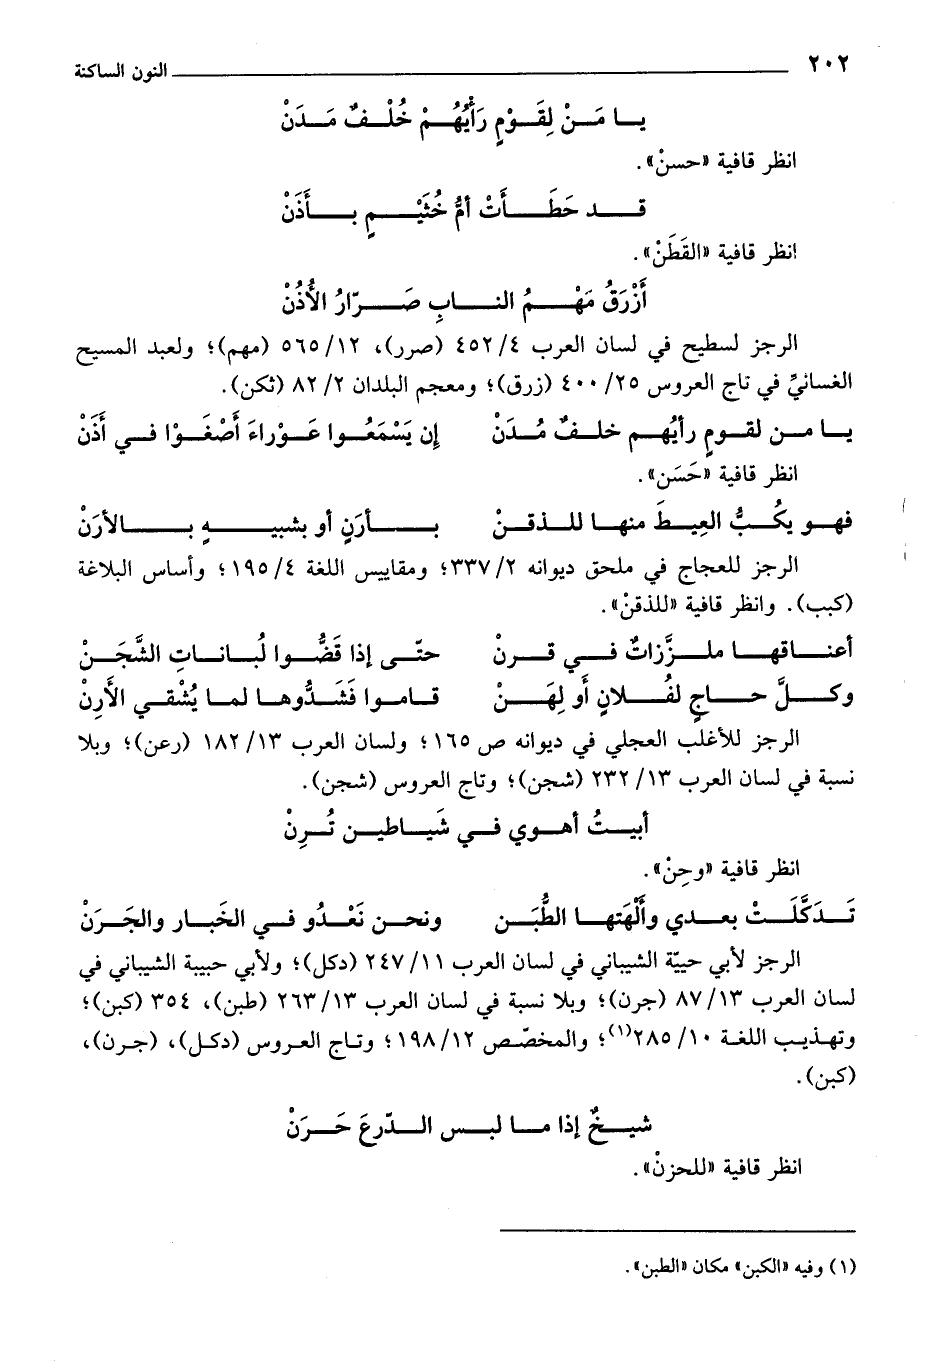 ٢٠٢ النون الساكنة
يـا مَـنْ لِقَـوْمٍ رَأْيُهُـمْ خُلْـفٌ مَـدَنْ
انظر قافية «حسنْ».
قـد حَطَـأَتْ أمُّ خُثَيْـمٍ بـأَذَنْ
انظر قافية «القَطَنْ».
أَزْرَقُ مَهْـمُ النـابِ صَـرّارُ الأُذُنْ
الرجز لسطيح في لسان العرب ٤/ ٤٥٢ (صرر)، ١٢/ ٥٦٥ (مهم)؛ ولعبد المسيح
الغسانيِّ في تاج العروس ٢٥/ ٤٠٠ (زرق)؛ ومعجم البلدان ٢/ ٨٢ (ثكن).
يـا مـن لقـومٍ رأيُهـم خلـفٌ مُـدَنْ إن يَسْمَعُـوا عَـوْراءَ أَصْغَـوْا فـي أَذَنْ
انظر قافية «حَسَن».
فهـو يكُـبُّ العِيـطَ منهـا للـذقـنْ بـأرَنٍ أو بشبيـهٍ بـالأرَنْ
الرجز للعجاج في ملحق ديوانه ٢/ ٣٣٧؛ ومقاييس اللغة ٤/ ١٩٥؛ وأساس البلاغة
(كبب). وانظر قافية «للذقنْ».
أعنـاقهـا ملـزَّزاتٌ فـي قـرنْ حتّـى إذا قَضُّـوا لُبـانـاتِ الشَّجَـنْ
وكـلَّ حـاجٍ لفُـلانٍ أو لِهَـنْ قـامـوا فَشَدُّوهـا لمـا يُشْقـي الأَرِنْ
الرجز للأغلب العجلي في ديوانه ص ١٦٥؛ ولسان العرب ١٣/ ١٨٢ (رعن)؛ وبلا
نسبة في لسان العرب ١٣/ ٢٣٢ (شجن)؛ وتاج العروس (شجن).
أبيـتُ أهـوي فـي شَيـاطيـن تُـرِنْ
انظر قافية «وجِنْ».
تَـدَكَّلَـتْ بعـدي وأَلْهَتهـا الطُّبَـن ونحـن نَعْـدُو فـي الخَبـار والجَـرَنْ
الرجز لأبي حبيّة الشيباني في لسان العرب ١١/ ٢٤٧ (دكل)؛ ولأبي حبيبة الشيباني في
لسان العرب ١٣/ ٨٧ (جرن)؛ وبلا نسبة في لسان العرب ١٣/ ٢٦٣ (طبن)، ٣٥٤ (كبن)؛
وتهـذيـب اللغـة ١٠/ ٢٨٥(١)؛ والمخصّـص ١٢/ ١٩٨؛ وتـاج العـروس (دكـل)، (جـرن)،
(كبن).
شيـخٌ إذا مـا لبـس الـدّرعَ حَـرَنْ
انظر قافية «للحزنْ».
(١) وفيه «الكبن» مكان «الطبن».